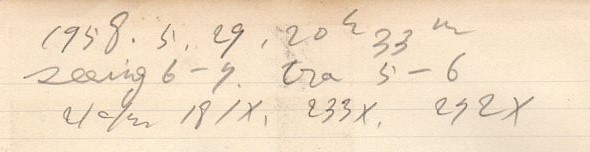 1958. 5. 29, 20h 33m
seeing 6-7. tra 5-6
21cm 181X, 233X, 292X